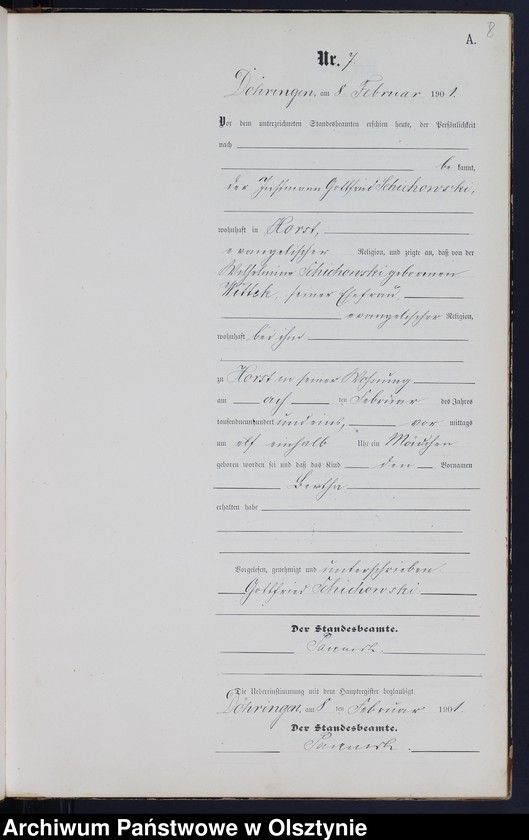 8
A.
Nr. 7
Döhringen, am 8 Februar 1901.
Vor dem unterzeichneten Standesbeamten erschien heute, der Persönlichkeit
nach
be kannt,
der Instmann Gottfried Schichowski,
wohnhaft in Horst,
evangelischer Religion, und zeigte an, daß von der
Wilhelmine Schichowski geborenen
Wittek, seiner Ehefrau,
evangelischer Religion,
wohnhaft bei ihm
zu Horst in seiner Wohnung
am ach ten Februar des Jahres
tausendneunhundert und eins, vor mittags
um elf einhalb Uhr ein Mädchen
geboren worden sei und daß das Kind den Vornamen
Bertha
erhalten habe
Vorgelesen, genehmigt und unterschrieben
Gottfried Schichowski
Der Standesbeamte.
Die Uebereinstimmung mit dem Hauptregister beglaubigt.
Döhringen, am 8 ten Februar 1901.
Der Standesbeamte.
Archiwum Państwowe w Olsztynie